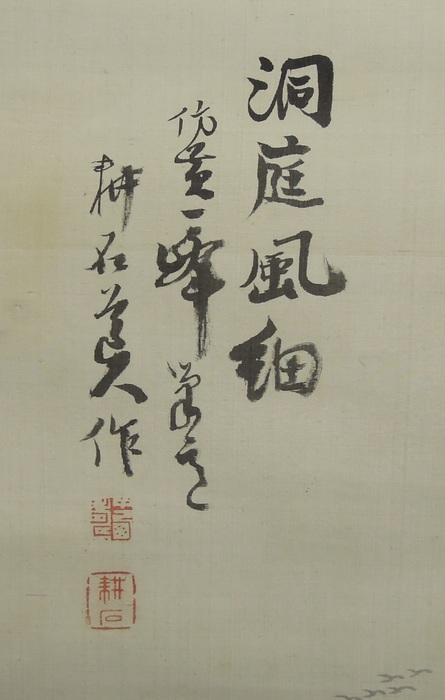 洞庭風細
仿黄一峰筆意
耕石道人作
耕石